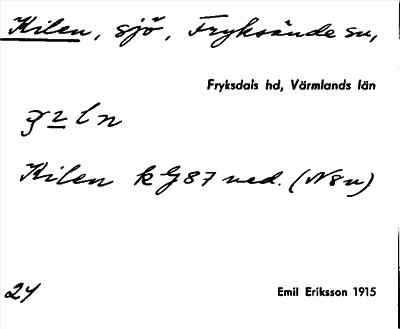 Kilen, sjö, Fryksände sn,
Fryksdals hd, Värmlands län
Kilen k G 87 ned. (N8n)
24
Emil Eriksson 1915